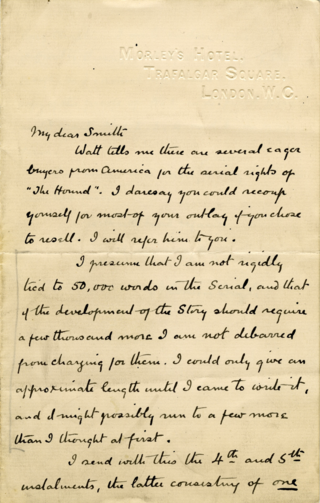 MORLEY'S HOTEL.
TRAFALGAR SQUARE.
LONDON, W.C.
My dear Smith
Watt tells me there are several eager
buyers from America for the serial rights of
"The Hound". I daresay you could recoup
yourself for most of your outlay if you chose
to resell. I will refer him to you.
I presume that I am not rigidly
tied to 50,000 words in the Serial, and that
if the development of the Story should require
a few thousand more I am not debarred
from charging for them. I could only give an
approximate length until I came to write it,
and it might possibly run to a few more
than I thought at first.
I send with this the 4th and 5th
instalments, the latter consisting of one